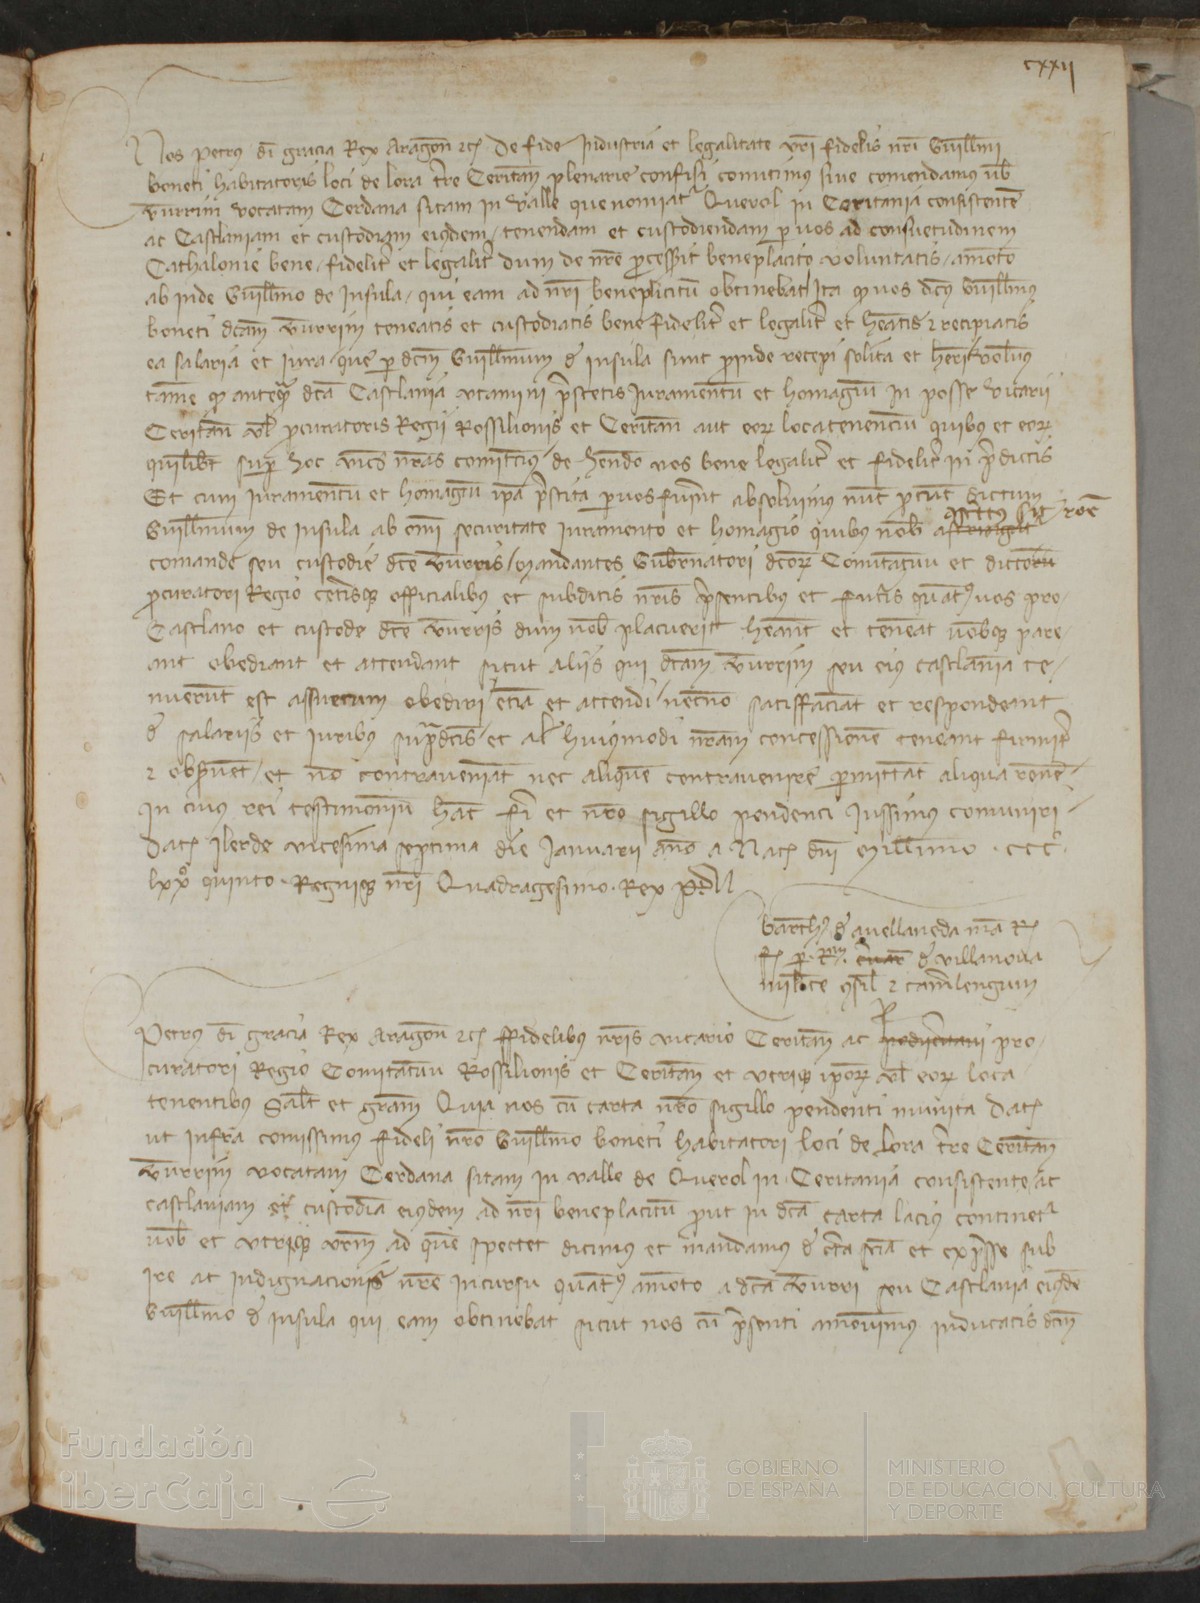 cxxij
Nos Petrus di gracia Rex Aragon etc De fide Industria et legalitate vri fidelis nri Guillmi
boneti habitatoris loci de lora tre Ceritan plenarie confisi comitimus sive comendamus vob
turrim vocatam Cerdana sitam in valle que nomiatr Querol in Ceritania consistente
ac Castlaniam et custodiam eiusdem / tenendam et custodiendam p vos ad consuetudinem
Cathalonie bene / fidelitr et legalitr dum de nre pcessit beneplacito voluntatis / amoto
ab inde Guillmo de Insula / qui eam ad nri beneplicitu obtinebat Ita q vos dcus Guillmus
boneti dcam turrim teneatis et custodiatis bene fidelitr et legalitr et heatis et recipiatis
ea salaria et iura que p dcm Guillmum de insula sunt pinde recepi solita et heri volumus
tame q anteq dca Castlania utamini pstetis Iuramentu et homagiu in posse vicarii
Ceritan vl pcuratoris Regii Rossilionis et Ceritan aut eor locatenenciu quibus et eor
quilibt sup hoc vices nras comittimus de hendo vos bene legalitr et fidelitr in pdictis
Et cum Iuramentu et homagiu ipa pstita p vos fuint absolvimus nuc p tuc dictum
asttus sit roe
Guillmum de Insula ab omi securitate iuramento et homagio quibus nob astringit
comande seu custodie dce turris / Mandantes Gubrnatori dcor Comitatuu et dictoru
pcuratori Regio cetisq officialibus et subditis nris psentibus et futis quatus vos pro
Castlano et custode dce turris dum nob placuerit heant et teneat vobisq pare
ant obediant et attendant sicut aliis qui dcam turrim seu eius castlania te
nuerut est assuetum obediri etia et attendi / necno satisfaciat et respondeant
de salariis et iuribus supdcis / et al huiusmodi nram concessione teneant firmitr
et observet / et no contraveniat nec alique contravenire pmittat aliqua rone
In cuius rei testimoniu hac fi et nro sigillo pendenti iussimus comuniri
Dat Ilerde vicesima septima die Ianuarii ano a Nat dni Millimo . ccc.
lxxo quinto . Regniq nri Quadragesimo . Rex P
barthus de avellaneda ma R
f p Rm de villanova
milite osil et camlengum
Petrus di gracia Rex Aragon etc ffidelibus nris vicario Ceritan ac pro
curatori Regio Comitatuu Rossilionis et Ceritan et utriq ipor vl eor loca
tenentibus Salt et gram Quia nos cu carta nro sigillo pendenti munita Dat
ut infra comissimus fideli nro Guillmo boneti habitatori loci de lora tre Ceritan
turrim vocatam Cerdana sitam in valle de Querol in Ceritania consistente ac
castlaniam et custodia eiusdem ad nri beneplacitu put in dca carta lacius continetr
vob et utriq vrm ad que spectet dicimus et mandamus de cta scia et expsse sub
ire ac indignacionis nre incursu quatus amoto a dca turri seu Castlania eiusde
Guillmo de insula qui eam obtinebat sicut nos cu psenti amovimus inducatis dcm
Fundación
iberCaja
GOBIERNO
DE ESPAÑA
MINISTERIO
DE EDUCACIÓN, CULTURA
Y DEPORTE